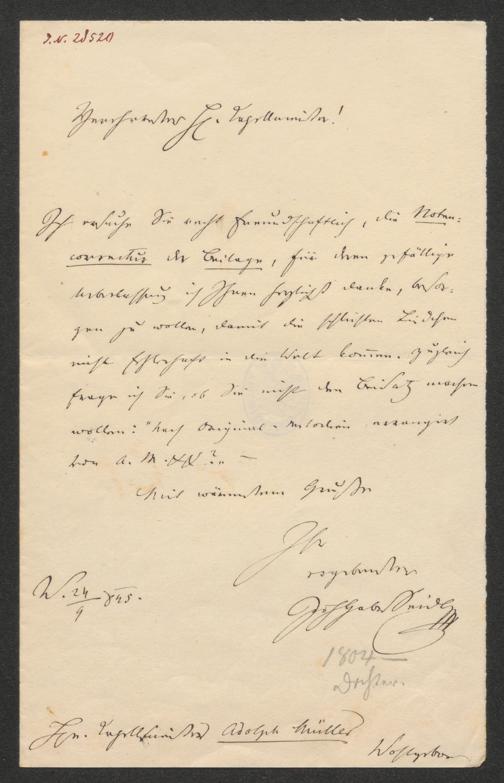 I.N. 28520
Verehrtester H. Kapellmeister!
Ich ersuche Sie recht freundschaftlich, die Noten-
correctur der Beilage, für deren gefällige
Ueberlassung ich Ihnen herzlichst danke, besor-
gen zu wollen, damit die schlichten Liedchen
nicht fehlerhaft in die Welt kommen. Zugleich
frage ich Sie, ob Sie nicht den Beisatz machen
wollen: "Nach Original-Melodien arrangirt
von A. M.
Mit wärmstem Gruße
Ihr
ergebenster
Joh Gabr Seidl
W. 24/9 845.
1804
Dichter.
Hrn. Kapellmeister Adolph Müller
Wohlgebor